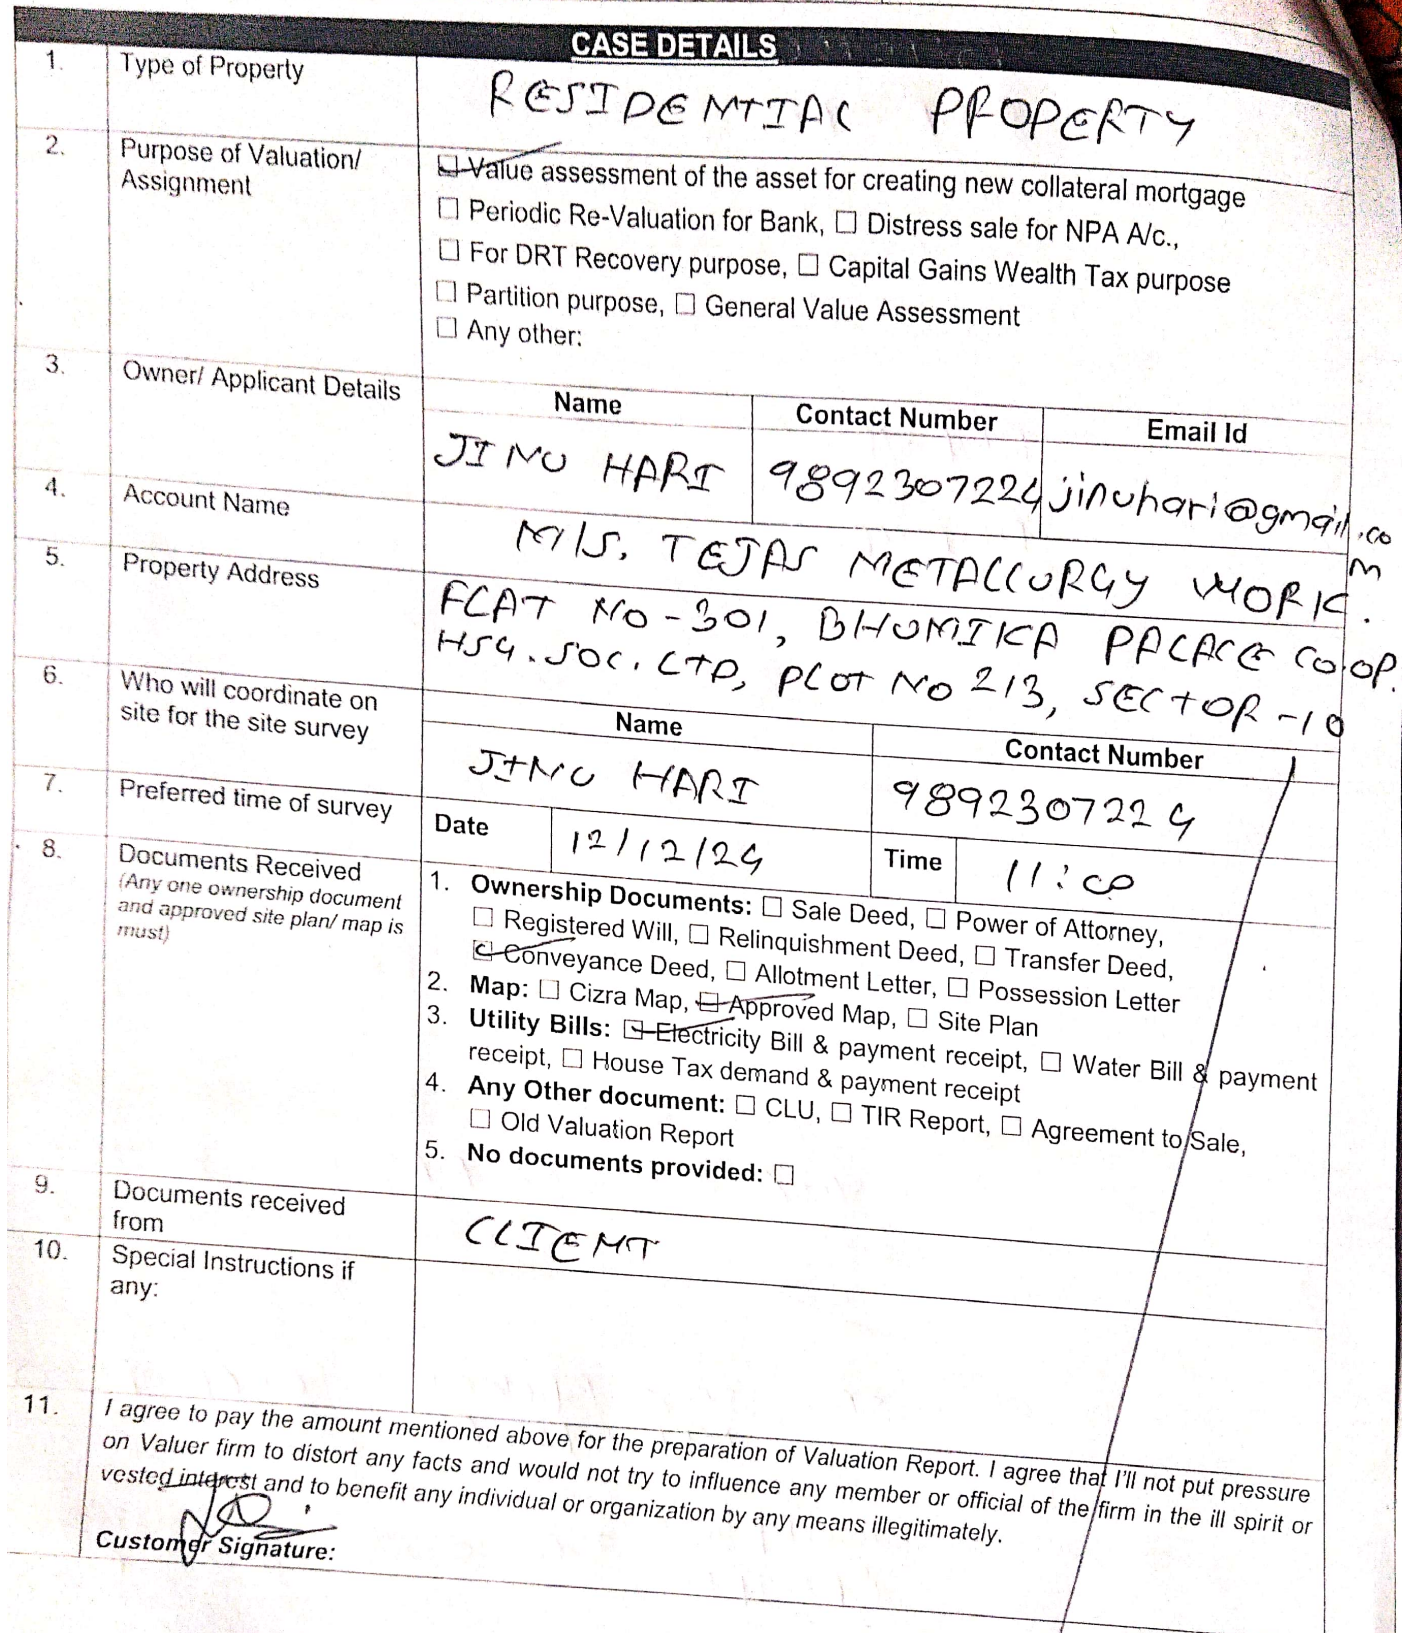 CASE DETAILS
1. Type of Property
RESIDENTIAL PROPERTY
2. Purpose of Valuation/
Assignment
☑ Value assessment of the asset for creating new collateral mortgage
☐ Periodic Re-Valuation for Bank, ☐ Distress sale for NPA A/c.,
☐ For DRT Recovery purpose, ☐ Capital Gains Wealth Tax purpose
☐ Partition purpose, ☐ General Value Assessment
☐ Any other:
3. Owner/ Applicant Details
Name Contact Number Email Id
JINU HARI 9892307224 jinuhari@gmail.co
m
4. Account Name
M/S. TEJAS METALLURGY WORK.
5. Property Address
FLAT NO-301, BHUMIKA PALACE CO.OP.
HSG. SOC. LTD, PLOT NO 213, SECTOR-10
6. Who will coordinate on
site for the site survey
Name Contact Number
JINU HARI 9892307224
7. Preferred time of survey
Date 12/12/24 Time 11:00
8. Documents Received
(Any one ownership document
and approved site plan/ map is
must)
1. Ownership Documents: ☐ Sale Deed, ☐ Power of Attorney,
☐ Registered Will, ☐ Relinquishment Deed, ☐ Transfer Deed,
☑ Conveyance Deed, ☐ Allotment Letter, ☐ Possession Letter
2. Map: ☐ Cizra Map, ☑ Approved Map, ☐ Site Plan
3. Utility Bills: ☑ Electricity Bill & payment receipt, ☐ Water Bill & payment
receipt, ☐ House Tax demand & payment receipt
4. Any Other document: ☐ CLU, ☐ TIR Report, ☐ Agreement to Sale,
☐ Old Valuation Report
5. No documents provided: ☐
9. Documents received
from
CLIENT
10. Special Instructions if
any:
11. I agree to pay the amount mentioned above for the preparation of Valuation Report. I agree that I'll not put pressure
on Valuer firm to distort any facts and would not try to influence any member or official of the firm in the ill spirit or
vested interest and to benefit any individual or organization by any means illegitimately.
Customer Signature: